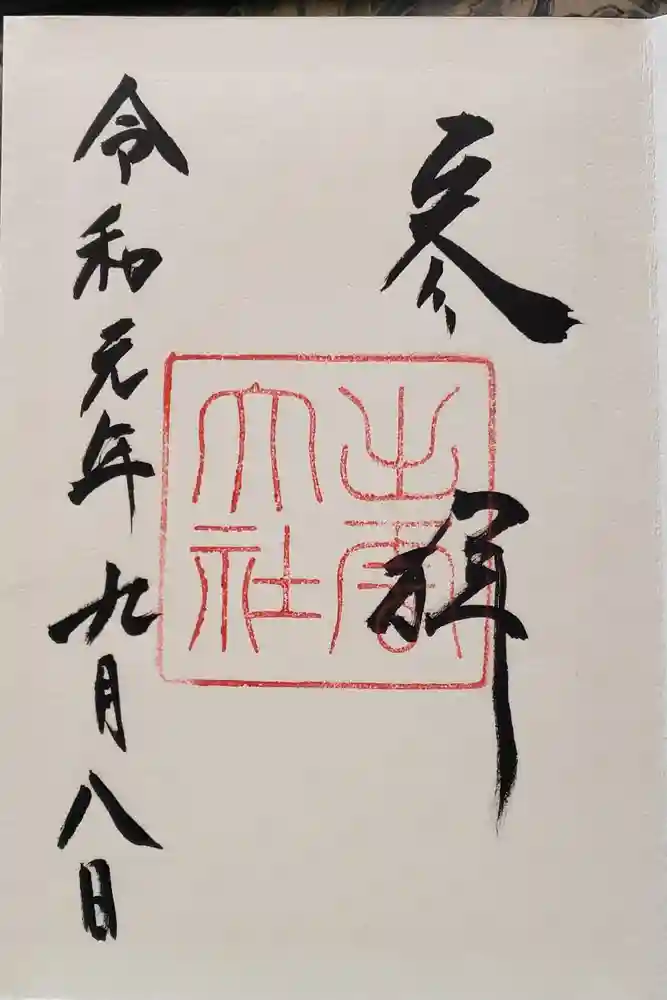 参拝
出雲
大社
令和元年九月八日